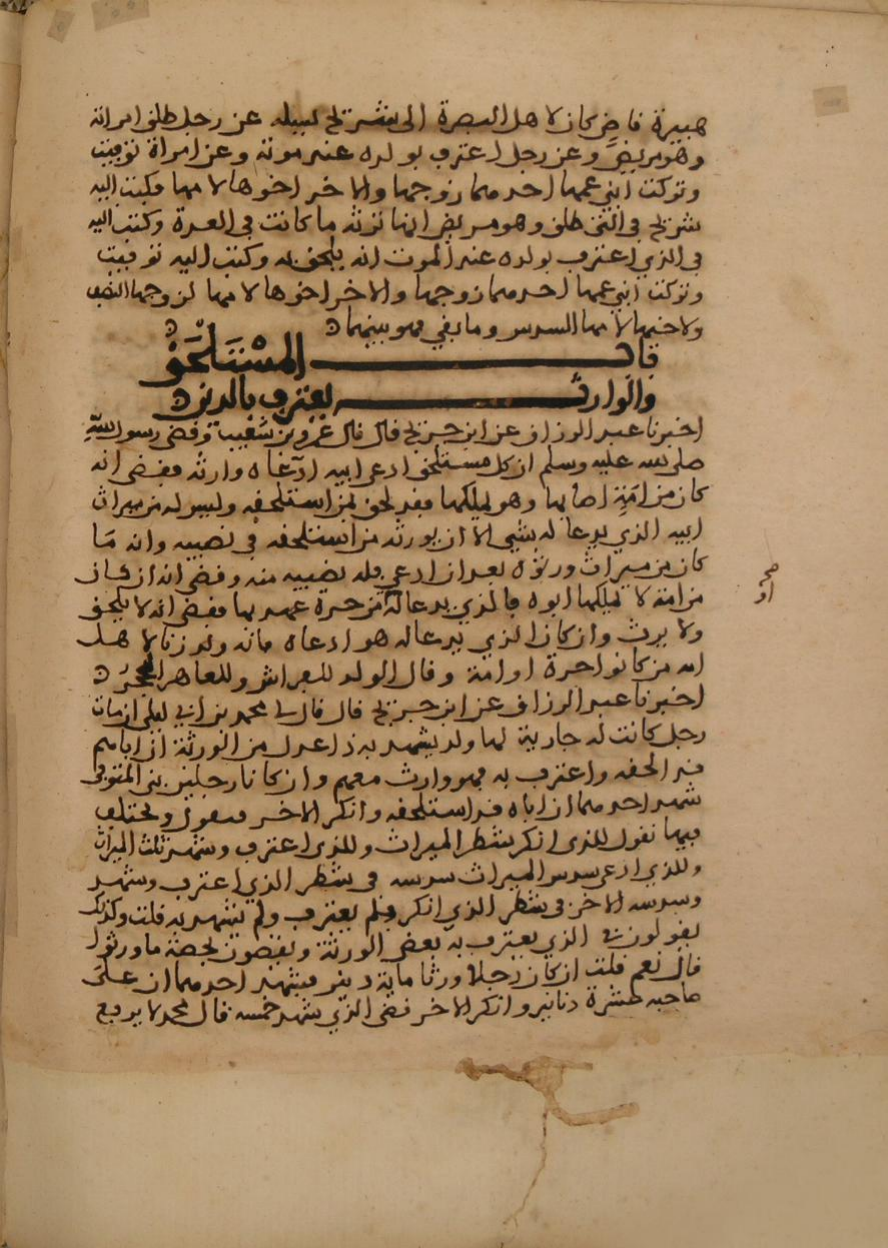 هبيرة قاض كان لاهل البصرة الى شريح يسله عن رجل طلق امراته
وهو مريض وعن رجل اعترف بولده عند موته وعن امراة توفيت
وتركت ابني عمها احدهما زوجها والاخر اخوها لامها فكتب اليه
شريح في التي طلق وهو مريض انها ترثه ما كانت في العدة وكتب اليه
في الذي اعترف بولده عند الموت انه يلحق به وكتب اليه توفيت
وتركت ابني عمها احدهما زوجها والاخر اخوها لامها لزوجها النصف
ولاخيها لامها السدس وما بقي فهو بينهما
باب المستلحق
والوارث يعترف بالدين
اخبرنا عبد الرزاق عن ابن جريج قال قال عمرو بن شعيب وقضى رسول الله
صلى الله عليه وسلم ان كل مستلحق ادعي ابيه ادعاه وارثه فقضى انه
كان من امة اصابها وهو يملكها فقد لحق بمن استلحقه وليس له من ميراث
ابيه الذي يدعا له بشي الا ان يورثه من استلحقه في نصيبه وانه ما
كان من ميراث ورثوه بعد ان ادعي فله نصيبه منه وقضى انه ان كان
من امة لا يملكها ابوه بالذي يدعا له من حرة عهر بها فقضى انه لا يلحق
ولا يرث وان كان الذي يدعا له هو ادعاه فانه ولد زنا لاهل
امه من كانوا حرة او امة وقال الولد للفراش وللعاهر الحجر
اخبرنا عبد الرزاق عن ابن جريج قال قال لي محمد بن ابي ليلى ان مات
رجل كانت له جارية لها ولد يشهد به ذا عدل من الورثة ان اباهم
قد الحقه واعترف به فهو وارث معهم وان كانا رجلين بني المتوفى
شهد احدهما ان اباه قد استلحقه وانكر الاخر فيقول ويختلف
فيها نقول للذي انكر شطر الميراث وللذي اعترف وشهد ثلث الميراث
وللذي ادعي سدس الميراث سدسه في شطر الذي اعترف وشهد
وسدسه الاخر في شطر الذي انكر فلم يعترف ولم يشهد به قلت وكذلك
يقولون في الذي يعترف به بعض الورثة ويقضون بحصة ما ورثوا
قال نعم قلت ان كان رجلا ورثا ماية دينر فيشهد احدهما ان على
صاحبه عشرة دنانير وانكر الاخر قضى الذي شهد خمسه قال محمد لا يرفع